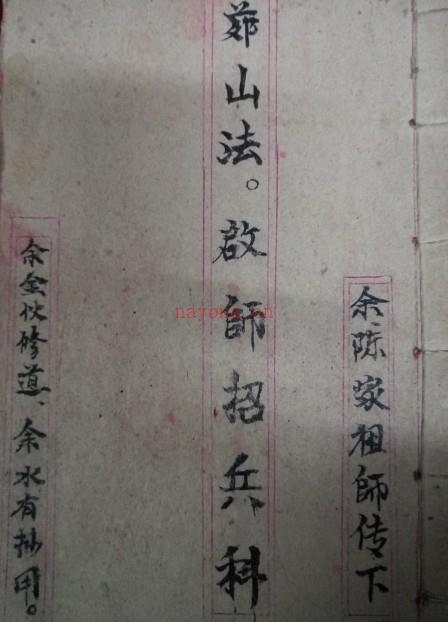 余陈家祖師传下
茆山法。啟師招兵科
余金伙修道、余水有抄用。
nayona.cn